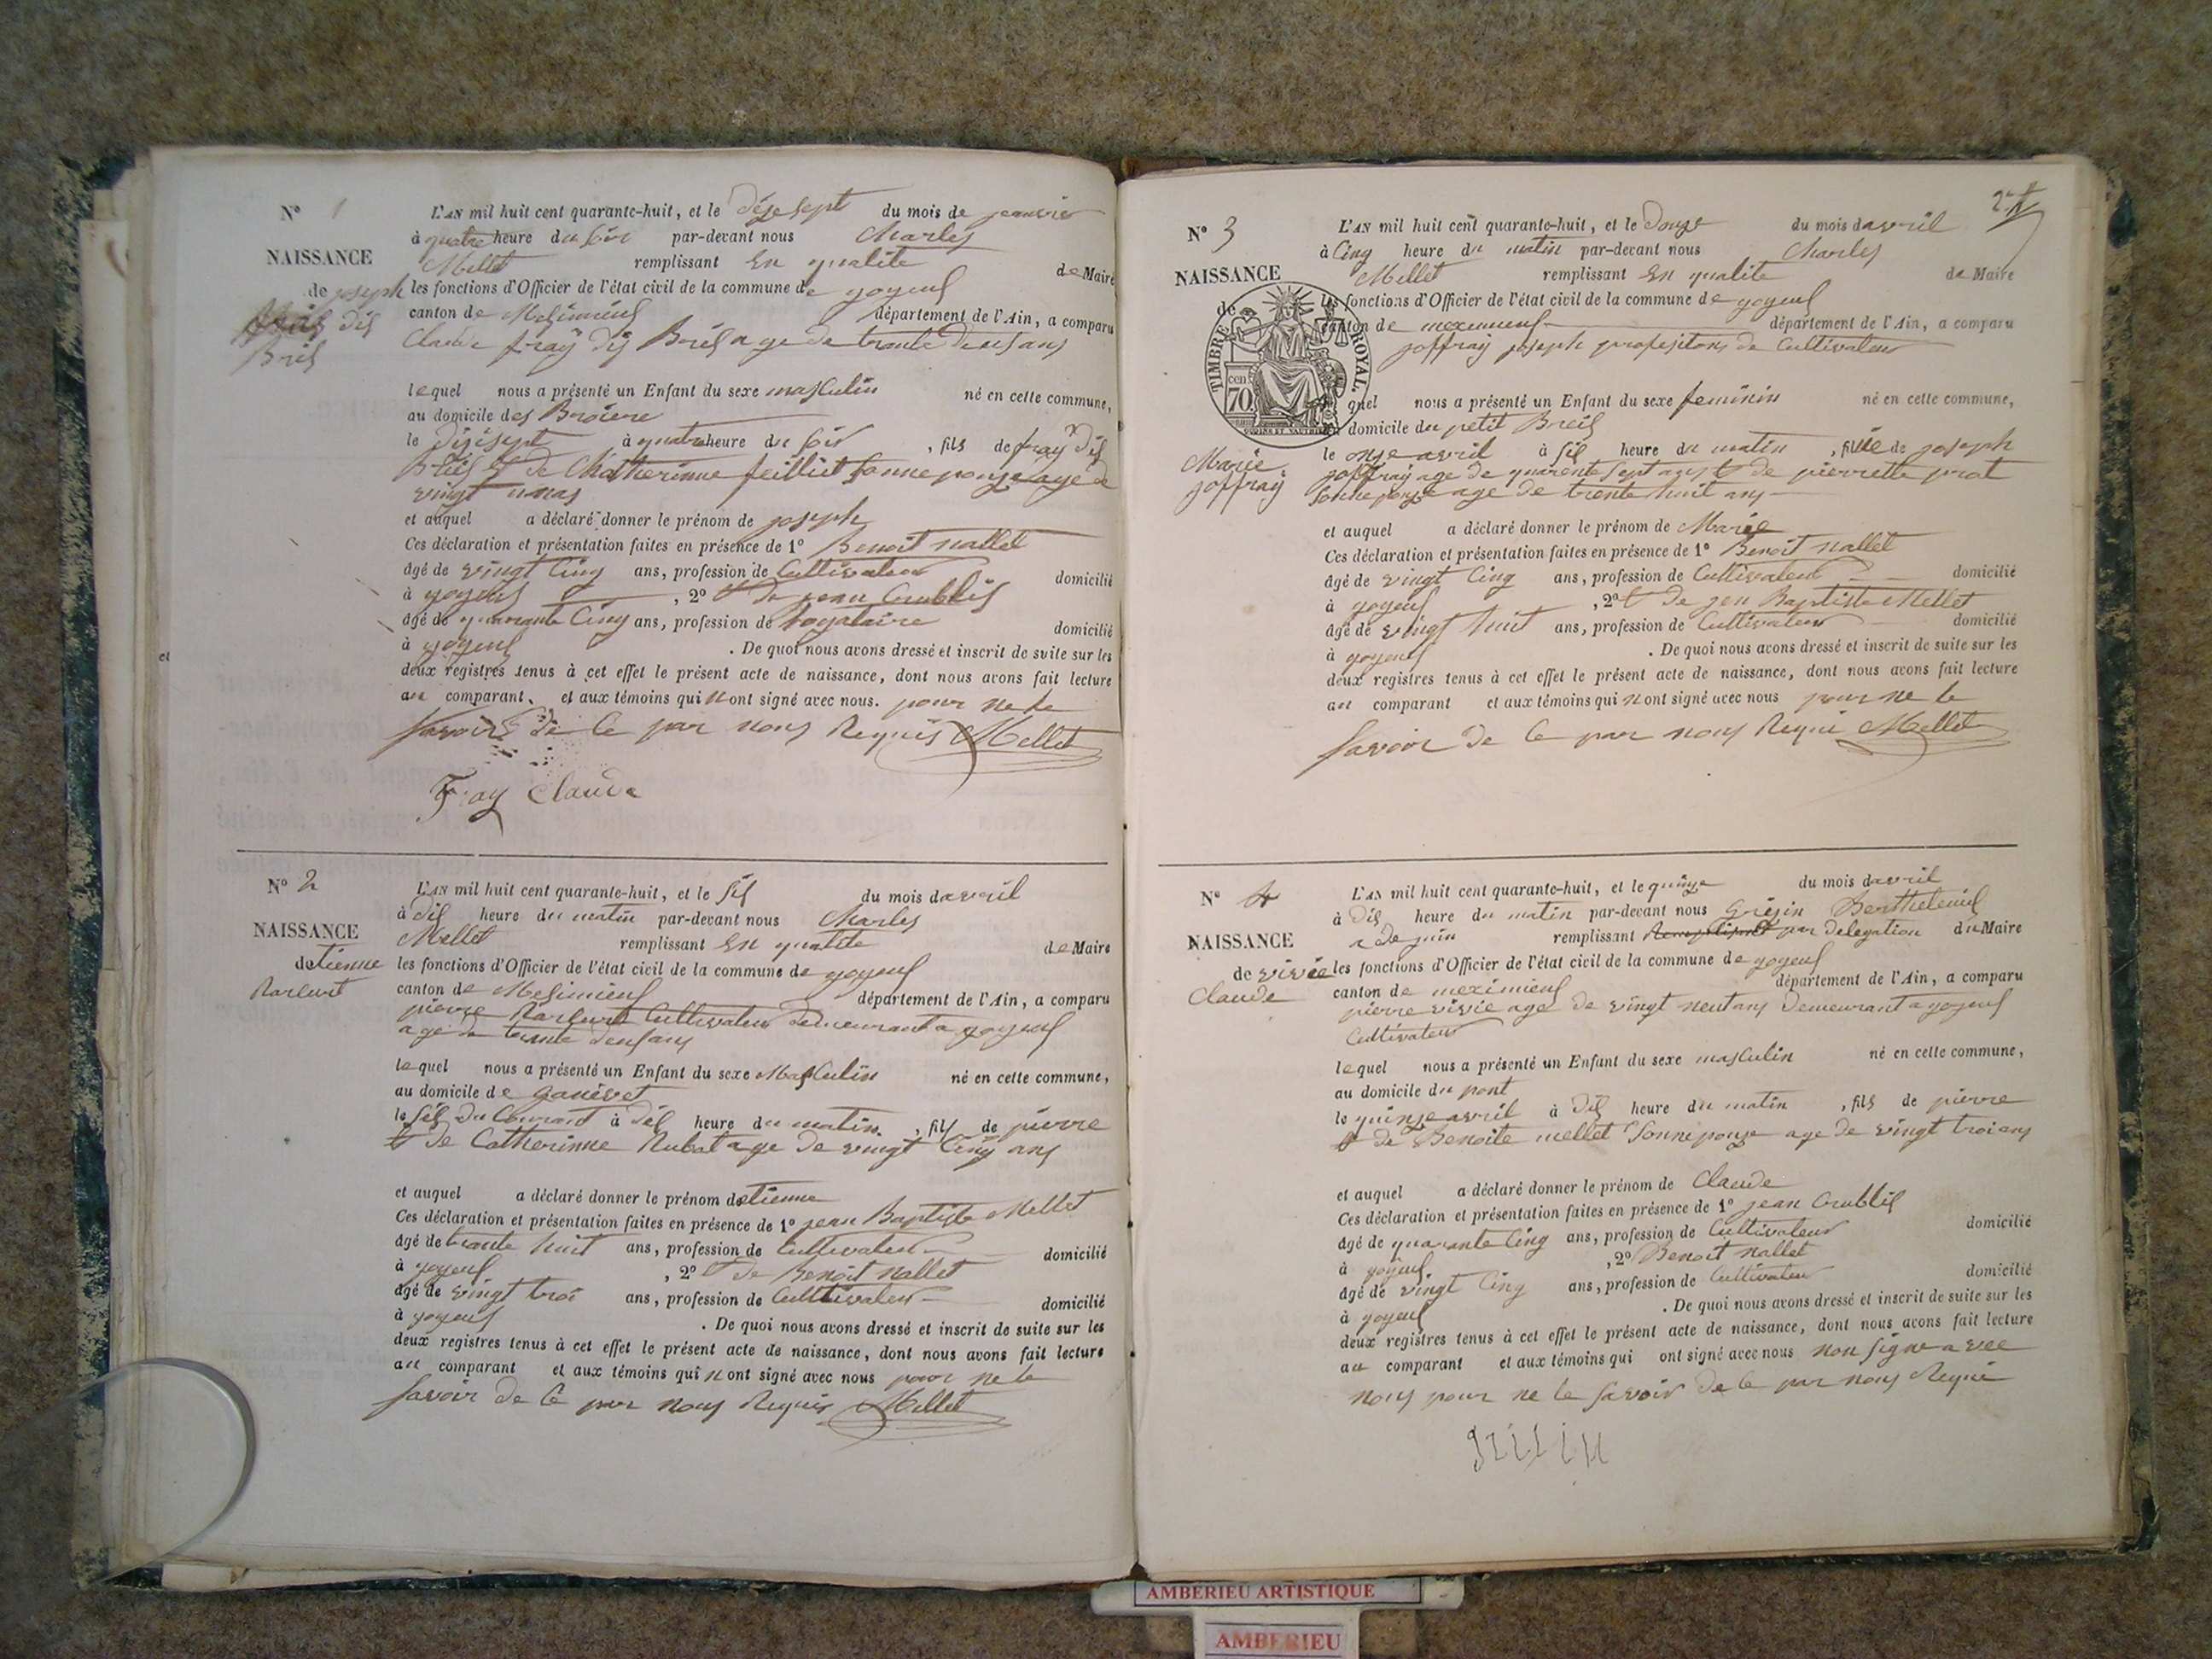 N° 1
NAISSANCE
de joseph
dis
Bril
L'AN mil huit cent quarante-huit, et le dije sept du mois de jeanvier
à quatre heure du soir par-devant nous Charles
Mellet remplissant en qualite de Maire
les fonctions d'Officier de l'état civil de la commune de yoyeus
canton de Mesimieus département de l'Ain, a comparu
Claude fray dis Bril age de trante deus ans
lequel nous a présenté un Enfant du sexe masculin né en cette commune,
au domicile des Broiere
le disisept à quatre heure du soir, fils de fray dis
Bril et de Chatherinne feilliet sonneponse age de
vingt unas
et auquel a déclaré donner le prénom de joseph
Ces déclaration et présentation faites en présence de 1° Benoit nallet
âgé de vingt cinq ans, profession de Cultivateur domicilié
à yoyeus, 2° et de jean Crublis
âgé de quarante Cinq ans, profession de domicilié
à yoyeus. De quoi nous avons dressé et inscrit de suite sur les
deux registres tenus à cet effet le présent acte de naissance, dont nous avons fait lecture
au comparant, et aux témoins qui nont signé avec nous. pour ne le
savoir de ce par nous Requis Mellet
Fray Claude
et
N° 2
NAISSANCE
detienne
L'AN mil huit cent quarante-huit, et le sis du mois davril
à dis heure du matin par-devant nous Charles
Mellet remplissant en qualite de Maire
les fonctions d'Officier de l'état civil de la commune de yoyeus
canton de Mesimieus département de l'Ain, a comparu
pierre Cultivateur demeurant a yoyeus
age de trante deus ans
lequel nous a présenté un Enfant du sexe Masculin né en cette commune,
au domicile de ganivet
le sis du Courant à dis heure du matin, fils de pierre
et de Catherinne Rubat age de vingt Cinq ans
et auquel a déclaré donner le prénom detienne
Ces déclaration et présentation faites en présence de 1° jean Baptiste Mellet
âgé de trante huit ans, profession de Cultivateur domicilié
à yoyeus, 2° et de Benoit nallet
âgé de vingt troi ans, profession de Cultivateur domicilié
à yoyeus. De quoi nous avons dressé et inscrit de suite sur les
deux registres tenus à cet effet le présent acte de naissance, dont nous avons fait lecture
au comparant et aux témoins qui nont signé avec nous pour ne le
savoir de ce par nous Requis Mellet
N° 3
NAISSANCE
de
TIMBRE ROYAL.
cen
70
Marie
joffray
L'AN mil huit cent quarante-huit, et le douze du mois davril
à Cinq heure du matin par-devant nous Charles
Mellet remplissant en qualite de Maire
les fonctions d'Officier de l'état civil de la commune de yoyeus
canton de meximieus département de l'Ain, a comparu
joffray joseph profesitons de Cultivateur
quel nous a présenté un Enfant du sexe feminin né en cette commune,
domicile du petit Breil
le onze avril à sis heure du matin, fille de joseph
joffray age de quarente sept ans et de pierrette prat
sonneponse age de trente huit ans
et auquel a déclaré donner le prénom de Marie
Ces déclaration et présentation faites en présence de 1° Benoit nallet
âgé de vingt Cinq ans, profession de Cultivateur domicilié
à yoyeus, 2° et de jen Baptiste Mellet
âgé de vingt huit ans, profession de Cultivateur domicilié
à yoyeus. De quoi nous avons dressé et inscrit de suite sur les
deux registres tenus à cet effet le présent acte de naissance, dont nous avons fait lecture
au comparant et aux témoins qui nont signé avec nous pour ne le
savoir de ce par nous Requi Mellet
N° 4
NAISSANCE
de vivié
Claude
L'AN mil huit cent quarante-huit, et le quinze du mois davril
à dis heure du matin par-devant nous Grisin Berthelemis
adejuin remplissant par delegation du Maire
les fonctions d'Officier de l'état civil de la commune de yoyeus
canton de meximieus département de l'Ain, a comparu
pierre vivié age de vingt neut ans demeurant a yoyeus
Cultivateur
lequel nous a présenté un Enfant du sexe masculin né en cette commune,
au domicile du pont
le quinze avril à dis heure du matin, fils de pierre
et de Benoite mellet sonneponse age de vingt troi ans
et auquel a déclaré donner le prénom de Claude
Ces déclaration et présentation faites en présence de 1° jean Crublis
âgé de quarante Cinq ans, profession de Cultivateur domicilié
à yoyeus, 2° Benoit nallet
âgé de vingt Cinq ans, profession de Cultivateur domicilié
à yoyeus. De quoi nous avons dressé et inscrit de suite sur les
deux registres tenus à cet effet le présent acte de naissance, dont nous avons fait lecture
au comparant et aux témoins qui ont signé avec nous non signe avec
nous pour ne le savoir de ce par nous Requi
AMBERIEU ARTISTIQUE
AMBERIEU